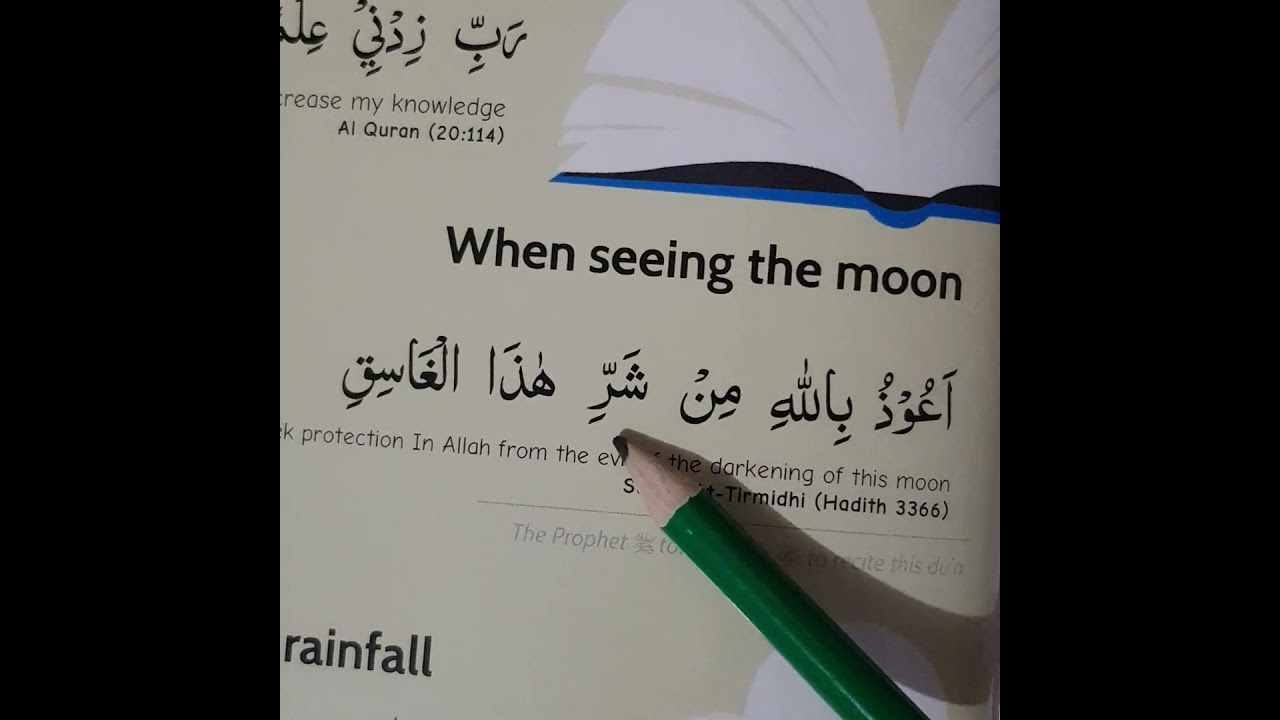 رَبِّ زِدْنِيْ
my knowledge
Al Quran (20:114)
When seeing the moon
اَعُوْذُ بِاللهِ مِنْ شَرِّ هٰذَا الْغَاسِقِ
protection In Allah from the the darkening of this moon
(Hadith 3366)
The Prophet ﷺ to recite this du'a
rainfall